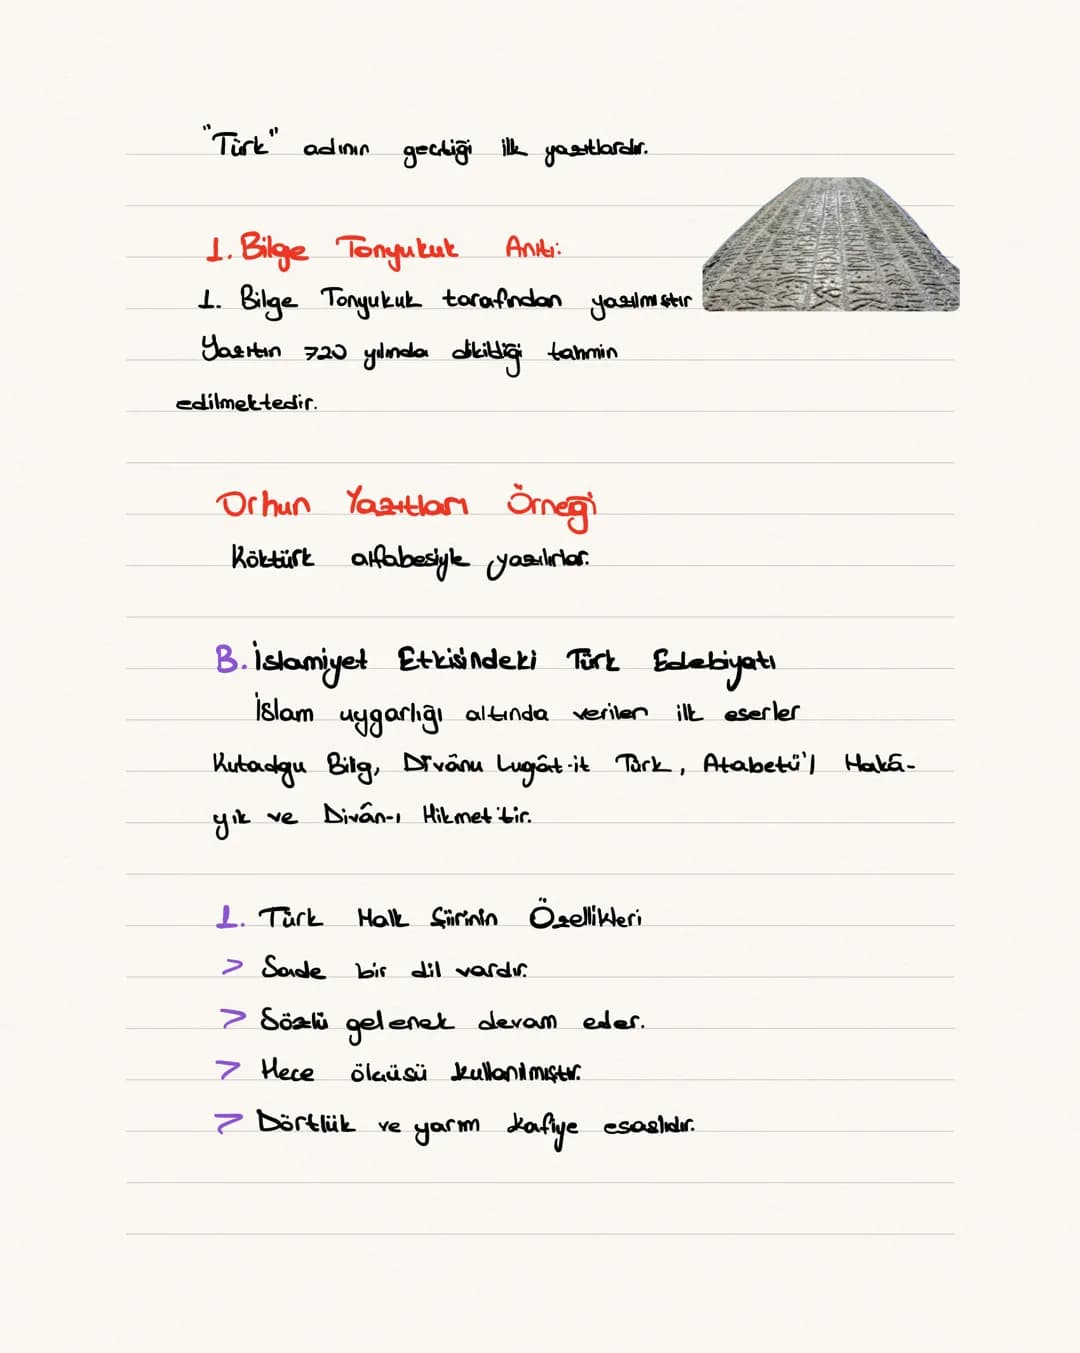 "Türk" adının geçtiği ilk yazıtlardır.
1. Bilge Tonyukuk Anıtı:
1. Bilge Tonyukuk tarafından yazılmıştır
Yazıtın 720 yılında dikildiği tahmin
edilmektedir.
Orhun Yazıtları Örneği
Köktürk alfabesiyle yazılırlar.
B. İslamiyet Etkisindeki Türk Edebiyatı
İslam uygarlığı altında verilen ilk eserler
Kutadgu Bilig, Dîvânu Lugât-it Türk, Atabetü'l Hakâ-
yık ve Divân-ı Hikmet'tir.
1. Türk Halk Şiirinin Özellikleri
> Sade bir dil vardır.
> Sözlü gelenek devam eder.
> Hece ölçüsü kullanılmıştır.
> Dörtlük ve yarım kafiye esaslıdır.